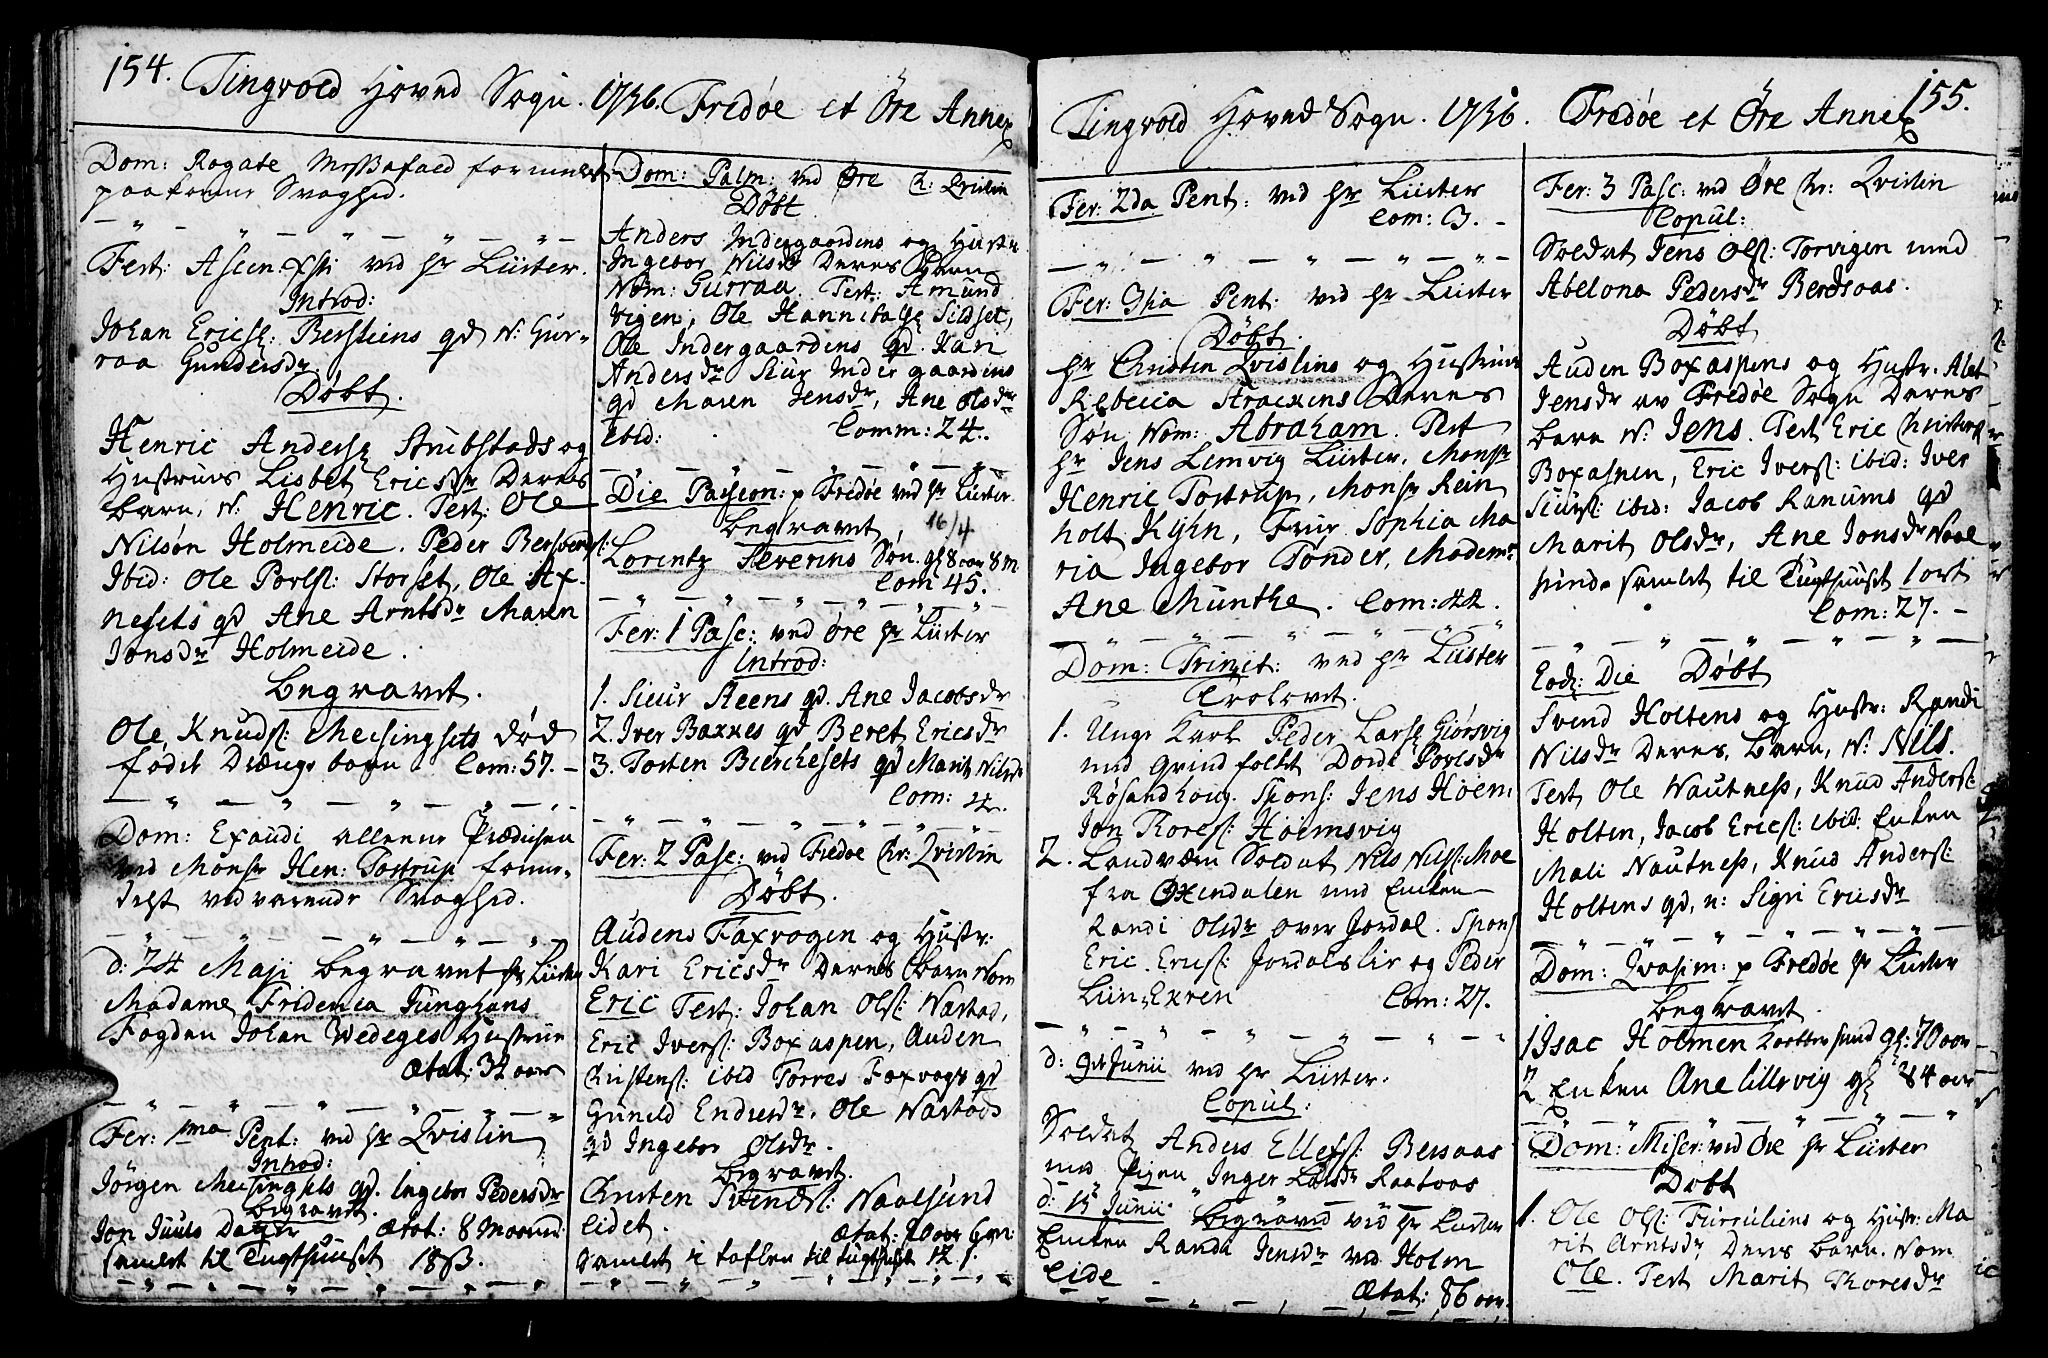 154. Tingvold Hoved Sogn. 1736. Fredøe et Öre Annex
Dom: Rogate Messefald formedelst
paakomne Svaghed.
Fest: Ascen: Xsti ved hr Lüster.
Introd:
Johan Erics: Bersteens qd N: Gur-
raa Gundersdr.
Døbt.
Henric Anders: Stubstads og
Hustrues Lisbet Ericsdr Deres
barn, N: Henric. Test: Ole
Nilsøn Holmeide. Peder Bersvends:
Ibid: Ole Povls: Storset, Ole Ax-
nesets qd Ane Arntsdr Maren
Jonsdr Holmeide.
begravet.
Ole Knuds: Meisingsets død
fødte Drænge barn. Com: 57.
Dom: Exaudi alleene Prædiken
ved Monsr Hen: Tostrup forme-
delst vedvarende Svaghed.
d: 24 Maji begravet hr Lüster
Madame Friderica Junghans
Fogden Johan Wedeges Hustrue
Ætat: 32 aar
Fer: 1ma Pent: ved hr Qvislin
Introd:
Jörgen Meisingsets qd. Ingebor Pedersdr
begravet.
Jon Juuls Datter Ætat: 8 Maaned:
samlet til Tugthuuset 18 β.
Dom: Palm: ved Øre Hr: Qvislin
Døbt
Anders Indergaardens og Hustr:
Ingebor Nilsdr Deres Barn
Nom: Gurraa. Test: Amund
Vigen, Ole Hannibals: Sildset,
Ole Indergaardens qd. Kari
Andersdr Siur Indergaardens
qd Maren Jensdr, Ane Olsdr
ibid: Comm: 24.
Die Passion: p Fredøe ved hr Lüster.
begravet 16/4
Lorentz Severins Søn gl 8 aar 8 m
Com 45.
Fer: 1 Pasc: ved Øre hr Lüster
Introd:
1. Siuur Steens qd. Ane Jacobsdr
2. Iver Baxnes qd Beret Ericsdr
3. Tosten Bierchesets qd Marit Nilsdr
Com: 42.
Fer: 2 Pasc: ved Fredøe Hr: Qvislin
Døbt.
Audens Faxvogen og Hustr:
Kari Ericsdr Deres barn Nom
Eric Test: Johan Ols: Nastad,
Eric Ivers: Boxaspen, Auden
Christens: ibid Torres Foxvogs qd
Gunild Endresdr. Ole Nastads
qd Ingebor Olsdr.
begravet.
Christen Svends: Naalsund
Eidet. Ætat:
samlet i taflen til tugthuset
Tingvold Hoved Sogn. 1736. Fredøe et Öre Annex 155.
Fer: 2da Pent: ved hr Lüster
Com: 3.
Fer: 3tia Pent: ved hr Lüster
Døbt.
hr Christen Qvislins og Hustrues
Rebecca Strackens Deres
Søn Nom: Abraham. Test
hr Jens Lemvig Lüster, Monsr
Henric Tostrup, Monsr Rein
holt Kyhn, Frue Sophia Ma
ria Ingebor Tønder, Madem:
Ane Munthe. Com: 44.
Dom: Trinit: ved hr Lüster
Trolovet.
1. Unge Karl Peder Lars: Giørsvig
med Grindfolkt Dorde Povlsdr
Røsandhoug. Spons: Jens Höem,
Jon Tores: Höemsvig
2. Landværn Soldat Nils Nils: Moe
fra Øxendalen med Enken
Randi Olsdr over Jordal. Spons
Eric Erics: Jordalslie og Peder
Liin Exren Com: 27.
d: 9de Junii ved hr Lüster.
Copul:
Soldat Anders Ellefs: Bersaas
med Pigen Inger Larsdr Raataas
d: 15 Junii begraved ved hr Lüster
Enken Randi Jensdr ved Holm
Eide Ætat: 86 aar.
Fer: 3 Pasc: ved Øre Hr: Qvislin
Copul:
Soldat Jens Ols: Torvigen med
Abelona Pedersdr Berdsaas.
Døbt
Auden Boxaspens og Hustr. Alet
Jensdr av Fredøe Sogn Deres
barn N: Jens. Test Eric Christens
Boxaspen, Eric Ivers: ibid: Iver
Siurs: ibid: Jacob Ranums qd
Marit Olsdr, Ane Jonsdr Naal
sund. samlet til Tugthuuset 1 ort
Com: 27.
Eod: Die Døbt
Svend Holtens og Hustr: Randi
Nilsdr Deres barn, N: Nils.
Test Ole Nautness, Knud Anders:
Holten, Jacob Erics: ibid: Enken
Mali Nautness, Knud Anders:
Holtens qd, n: Sigri Ericsdr
Dom: Qvasim: p Fredøe hr Lüster
begravet.
1 Isac Holmen gl: 70 aar
2 Enken Ane Lillevig gl 84 aar
Dom: Miser: ved Øre hr Lüster
Døbt
1. Ole Ols: Furruliens og Hustr: Ma
rit Arntsdr Deres barn. Nom
Ole. Test Marit Thoresdr